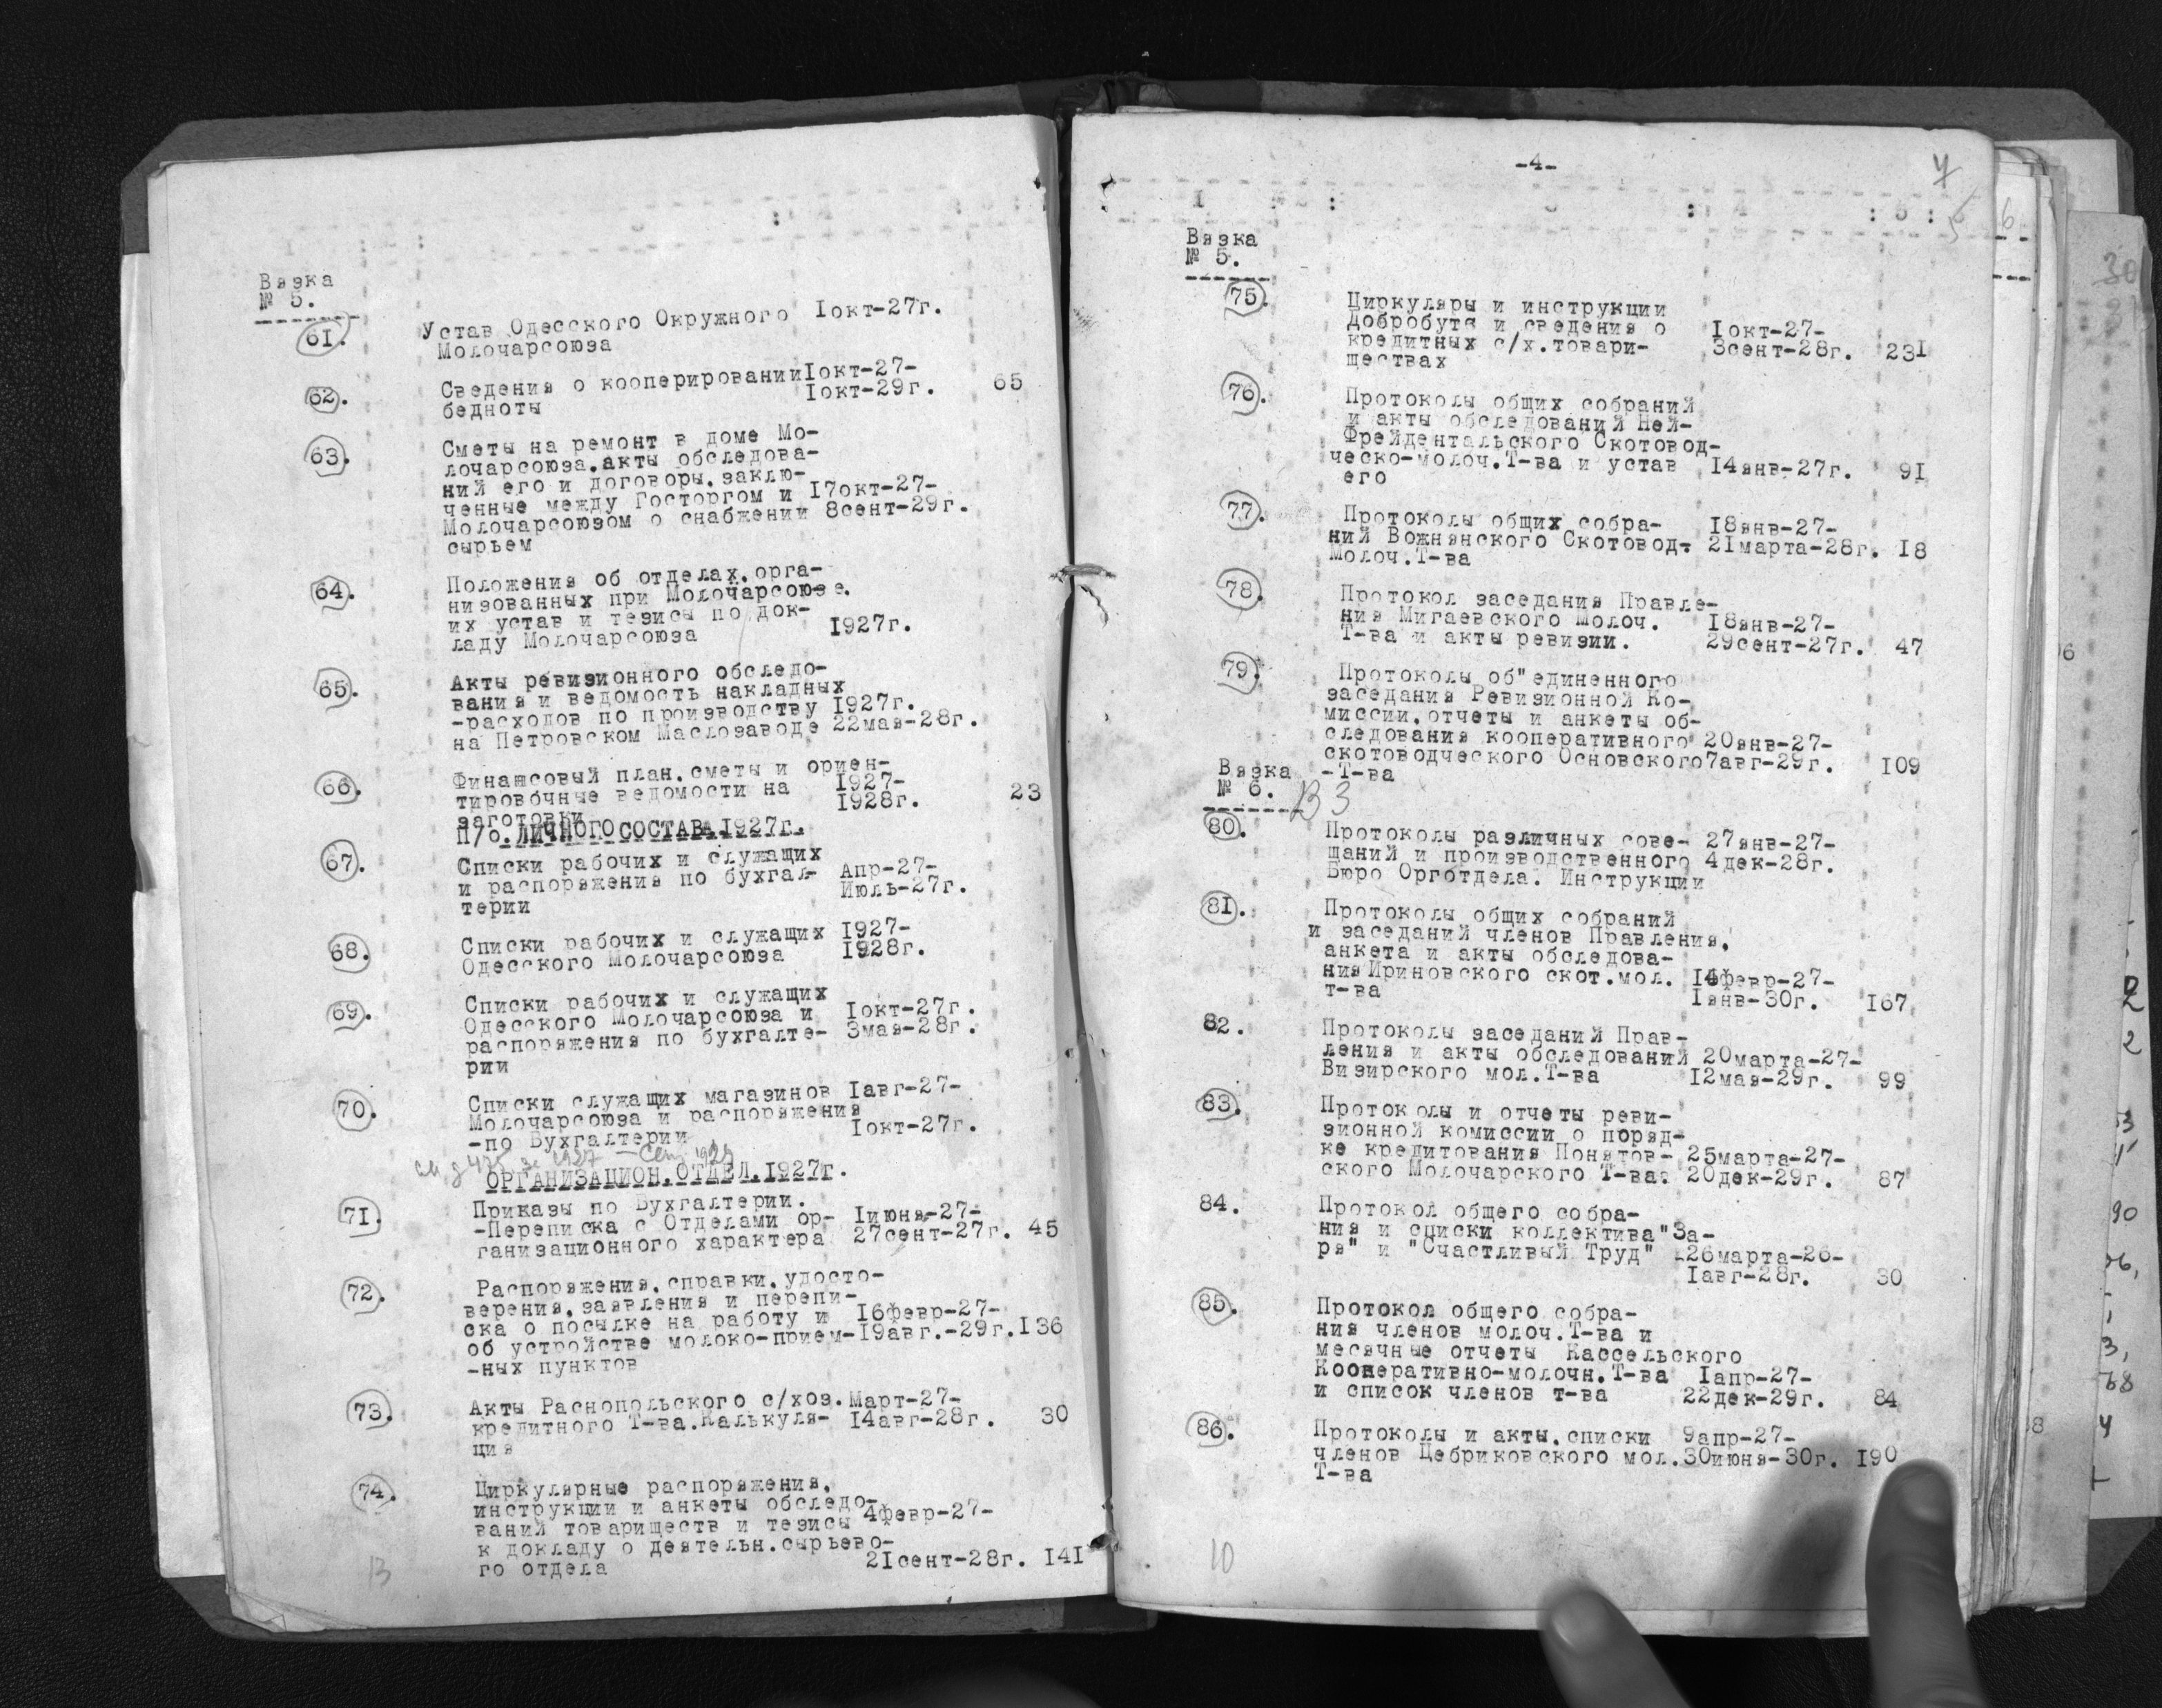 Вязка
№ 5.
61. Устав Одесского Окружного 1окт-27г.
Молочарсоюза
62. Сведения о кооперировании 1окт-27-
бедноты 1окт-29г. 65
63. Сметы на ремонт в доме Мо-
лочарсоюза.акты обследова-
ний его и договоры.заклю-
ченные между Госторгом и 17окт-27-
Молочарсоюзом о снабжении 8сент-29г.
сырьем
64. Положения об отделах.орга-
низованных при Молочарсоюзе.
их устав и тезисы по док-
ладу Молочарсоюза 1927г.
65. Акты ревизионного обследо-
вания и ведомость накладных
-расходов по производству 1927г.
на Петровском Маслозаводе 22мая-28г.
66. Финансовый план.сметы и ориен-
тировочные ведомости на 1927-
заготовки 1928г. 23
П/о.ЛИЧНОГО СОСТАВА.1927г.
67. Списки рабочих и служащих
и распоряжения по бухгал- Апр-27-
терии Июль-27г.
68. Списки рабочих и служащих 1927-
Одесского Молочарсоюза 1928г.
69. Списки рабочих и служащих
Одесского Молочарсоюза и 1окт-27г.
распоряжения по бухгалте- 3мая-28г.
рии
70. Списки служащих магазинов 1авг-27-
Молочарсоюза и распоряжения
-по Бухгалтерии 1окт-27г.
ОРГАНИЗАЦИОН.ОТДЕЛ.1927г.
71. Приказы по Бухгалтерии.
-Переписка с Отделами ор- 1июня-27-
ганизационного характера 27сент-27г. 45
72. Распоряжения.справки.удосто-
верения.заявления и перепи-
ска о посылке на работу и 16февр-27-
об устройстве молоко-прием-19авг.-29г.136
-ных пунктов
73. Акты Раснопольского с/хоз. Март-27-
кредитного Т-ва.Калькуля- 14авг-28г. 30
ция
74. Циркулярные распоряжения.
инструкции и анкеты обследо-
ваний товариществ и тезисы 4февр-27-
к докладу о деятельн.сырьево-
го отдела 21сент-28г. 141
13
-4-
7
1 : 2 : 3 : 4 : 5 : 6
Вязка
№ 5.
75. Циркуляры и инструкции
Добробута и сведения о 1окт-27-
кредитных с/х.товари- 3сент-28г. 231
ществах
76. Протоколы общих собраний
и акты обследований Ней-
Фрейдентальского Скотовод-
ческо-молоч.Т-ва и устав 14янв-27г. 91
его
77. Протоколы общих собра- 18янв-27-
ний Вожнянского Скотовод- 21марта-28г. 18
Молоч.Т-ва
78. Протокол заседания Правле-
ния Мигаевского Молоч. 18янв-27-
Т-ва и акты ревизии. 29сент-27г. 47
79. Протоколы об"единенного
заседания Ревизионной Ко-
миссии.отчеты и анкеты об-
следования кооперативного 20янв-27-
скотоводческого Основского 7авг-29г. 109
-Т-ва
Вязка
№ 6. В 3
80. Протоколы различных сове- 27янв-27-
щаний и производственного 4дек-28г.
Бюро Орготдела. Инструкции
81. Протоколы общих собраний
и заседаний членов Правления.
анкета и акты обследова-
ния Ириновского скот.мол. 14февр-27-
т-ва 1янв-30г. 167
82. Протоколы заседаний Прав-
ления и акты обследований 20марта-27-
Визирского мол.Т-ва 12мая-29г. 99
83. Протоколы и отчеты реви-
зионной комиссии о поряд-
ке кредитования Понятов- 25марта-27-
ского Молочарского Т-ва. 20дек-29г. 87
84. Протокол общего собра-
ния и списки коллектива"За-
ря" и "Счастливый Труд" -26марта-26-
1авг-28г. 30
85. Протокол общего собра-
ния членов молоч.Т-ва и
месячные отчеты Кассельского
Кооперативно-молочн.Т-ва 1апр-27-
и список членов т-ва 22дек-29г. 84
86. Протоколы и акты.списки 9апр-27-
членов Цебриковского мол.30июня-30г. 190
Т-ва
10